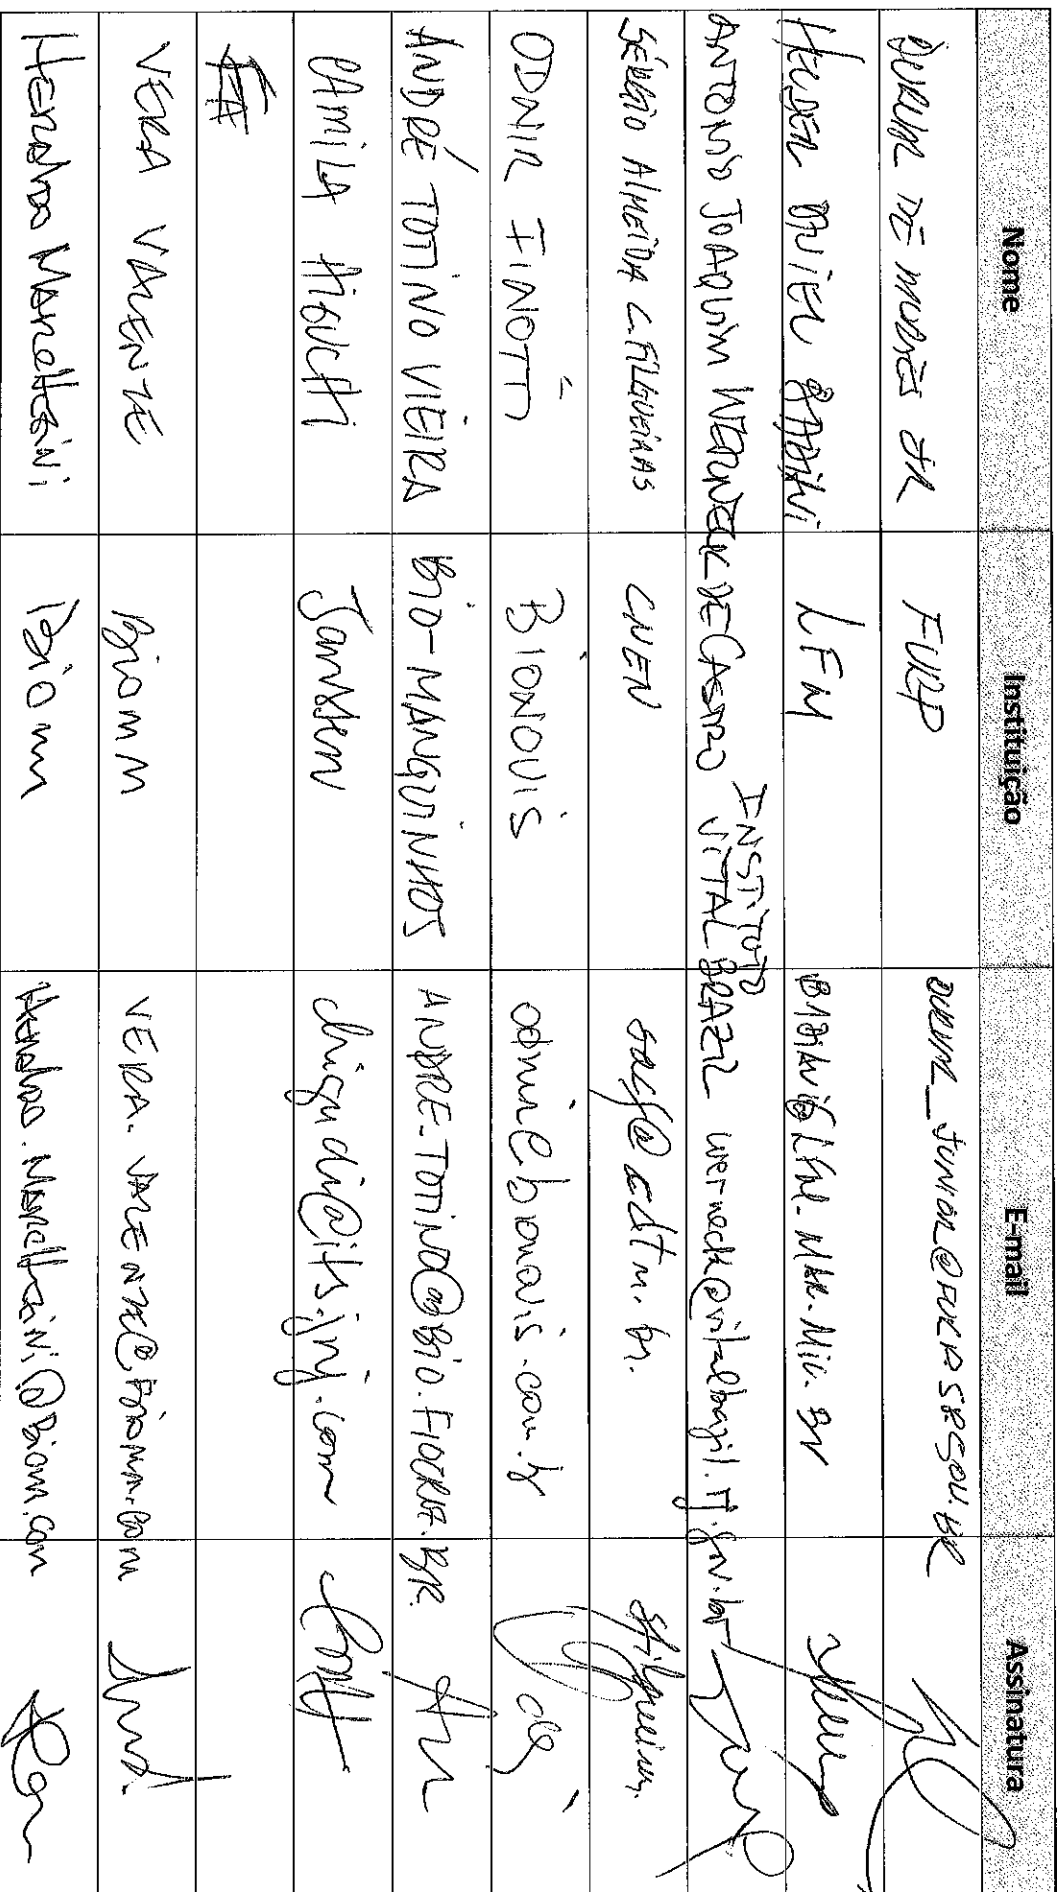 Nome Instituição E-mail Assinatura
DURVAL DE MORAES JR FURP DURVAL_JUNIOR@FURP.SP.GOV.BR
HELDER DANIEL BADIANI LFM
ANTONIO JOAQUIM WERNECK DE CASTRO INSTITUTO VITAL BRAZIL werneck@vitalbrazil.rj.gov.br
SÉRGIO ALMEIDA C. FILGUEIRAS CNEN sacf@cdtn.br.
ODNIR FINOTTI BIONOVIS odnir@bionovis.com.br
ANDRÉ TOTINO VIEIRA BIO-MANGUINHOS ANDRE.TOTINO@BIO.FIOCRUZ.BR.
CAMILA HIGUCHI Janssen chiguchi@its.jnj.com
VERA VALENTE Biomm VERA.VALENTE@biomm.com
Heraldo Marchezini Biomm Heraldo.Marchezini@Biomm.com